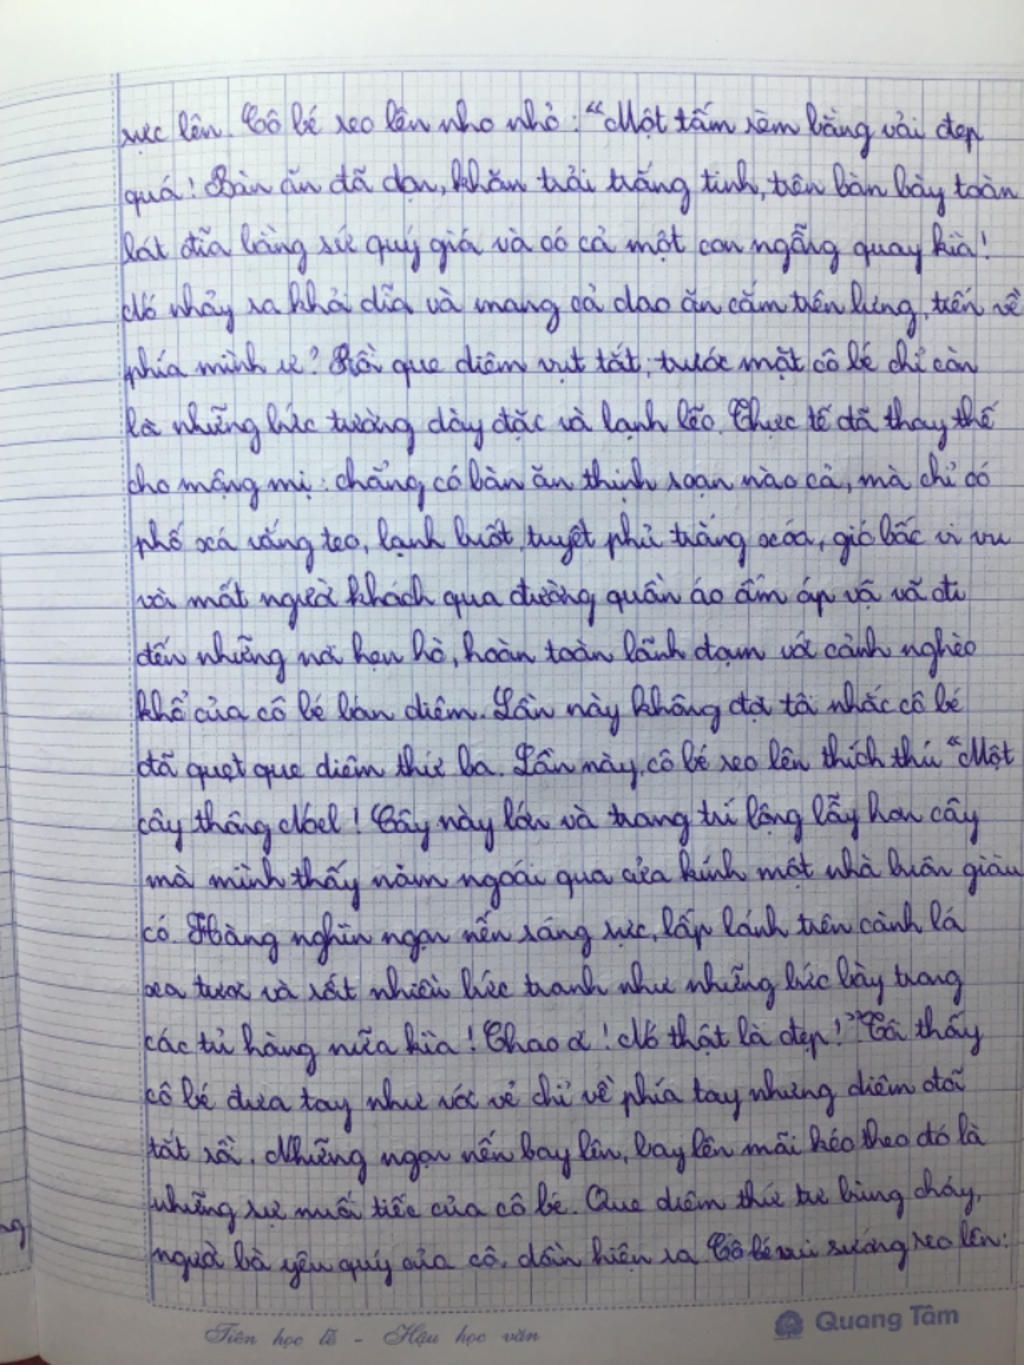 rực lên. Cô bé reo lên nho nhỏ: "Một tấm rèm bằng vải đẹp
quá! Bàn ăn đã dọn, khăn trải trắng tinh, trên bàn bày toàn
bát đĩa bằng sứ quý giá và có cả một con ngỗng quay kìa!
Nó nhảy ra khỏi đĩa và mang cả dao ăn cắm trên lưng, tiến về
phía mình ư? Rồi que diêm vụt tắt, trước mặt cô bé chỉ còn
là những bức tường dày đặc và lạnh lẽo. Thực tế đã thay thế
cho mộng mị: chẳng có bàn ăn thịnh soạn nào cả, mà chỉ có
phố xá vắng teo, lạnh buốt, tuyết phủ trắng xóa, gió bấc vi vu
và mất người khách qua đường quần áo ấm áp vộ vã đi
đến những nơi hẹn hò, hoàn toàn lãnh đạm với cảnh nghèo
khổ của cô bé bán diêm. Lần này không đợi tôi nhắc cô bé
đã quẹt que diêm thứ ba. Lần này, cô bé reo lên thích thú "Một
cây thông Noel! Cây này lớn và trang trí lộng lẫy hơn cây
mà mình thấy năm ngoái qua cửa kính một nhà buôn giàu
có. Hàng nghìn ngọn nến sáng rực, lấp lánh trên cành lá
xa tươi và rất nhiều bức tranh như những bức bày trong
các tủ hàng nữa kìa! Chao ơi! Nó thật là đẹp!" Tôi thấy
cô bé đưa tay như với vẻ chỉ về phía tay nhưng diêm đã
tắt rồi. Những ngọn nến bay lên, bay lên mãi kéo theo đó là
những sự nuối tiếc của cô bé. Que diêm thứ tư bùng cháy,
người bà yêu quý của cô, dần hiện ra. Cô bé vui sướng reo lên:
Tiên học lễ - Hậu học văn
Quang Tâm